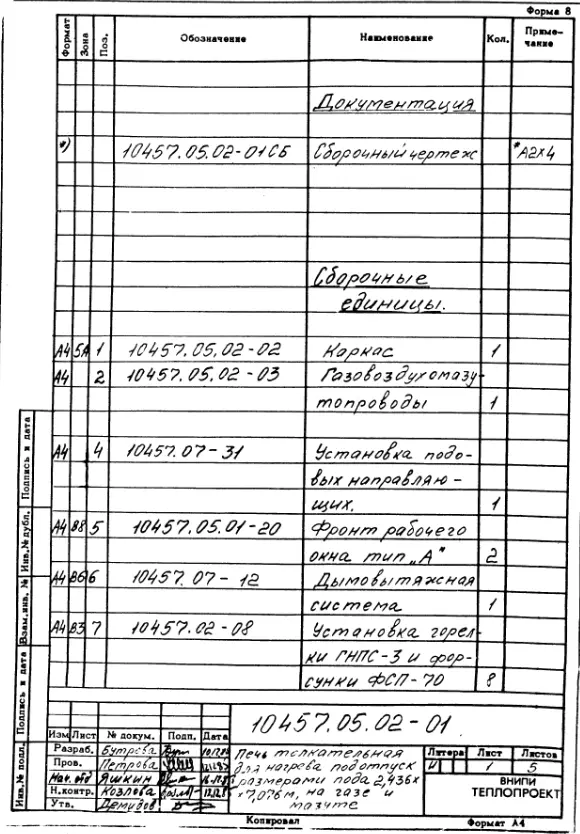 Форма 8
Формат Зона Поз. Обозначение Наименование Кол. Приме-
чание
Документация
*) 10457.05.02-01СБ Сборочный чертеж *А2х4
Сборочные
единицы.
А4 5А 1 10457.05.02-02 Каркас 1
А4 2 10457.05.02-03 Газовоздухомазу-
топроводы 1
А4 4 10457.07-31 Установка подо-
вых направляю-
щих. 1
А4 В8 5 10457.05.01-20 Фронт рабочего
окна тип „А" 2
А4 В6 6 10457.07-12 Дымовытяжная
система 1
А4 В3 7 10457.02-08 Установка горел-
ки ГНПС-3 и фор-
сунки ФСП-70 8
Подпись и дата
Инв.№ дубл.
Взам.инв. №
Подпись и дата
Инв.№ подл.
10457.05.02-01.
Изм Лист № докум. Подп. Дата
Разраб. Бутрова
Пров. Петрова
Нач. отд Яшкин
Н.контр. Козлова
Утв. Демидов
Печь толкательная
для нагрева под отпуск
с размерами пода 2,436х
х7,076м, на газе и
мазуте
Литера Лист Листов
И 1 5
ВНИПИ
ТЕПЛОПРОЕКТ
Копировал Формат А4